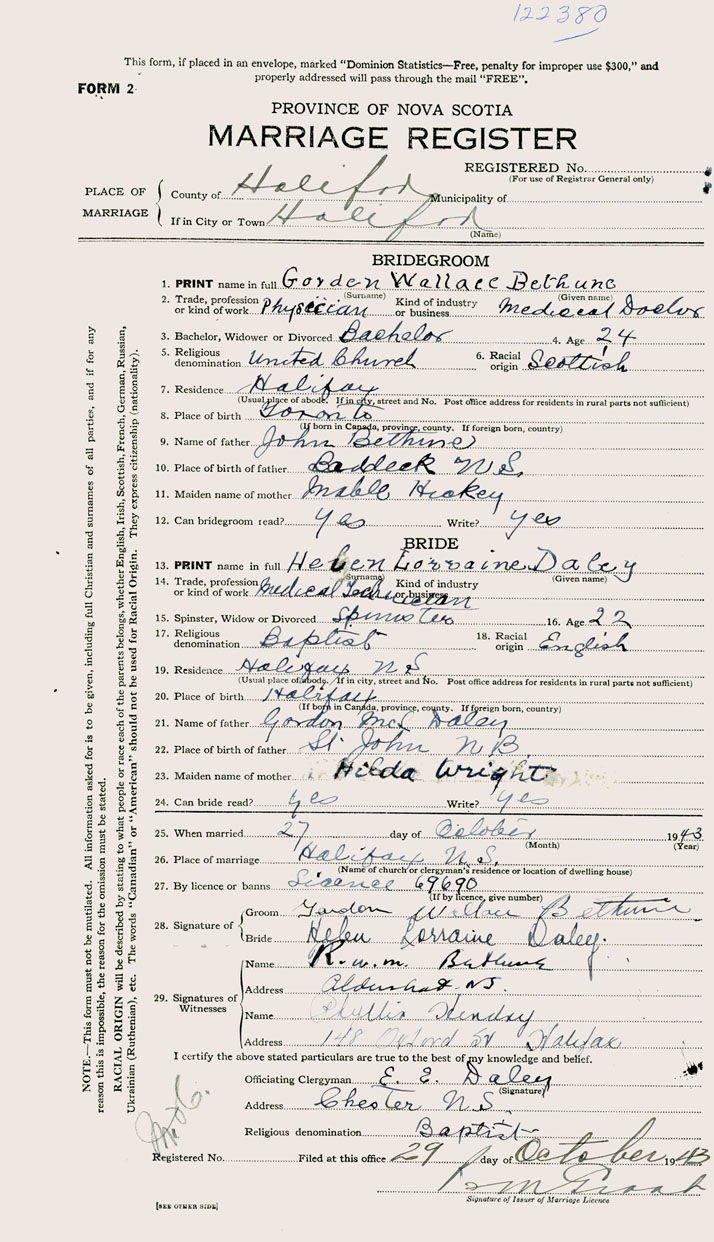 122380
This form, if placed in an envelope, marked "Dominion Statistics—Free, penalty for improper use $300," and
properly addressed will pass through the mail "FREE".
FORM 2
PROVINCE OF NOVA SCOTIA
MARRIAGE REGISTER
REGISTERED No.
(For use of Registrar General only)
PLACE OF MARRIAGE
County of Halifax Municipality of
If in City or Town Halifax
(Name)
BRIDEGROOM
1. PRINT name in full Gorden Wallace Bethune
(Surname) (Given name)
2. Trade, profession or kind of work Physician Kind of industry or business Medical Doctor
3. Bachelor, Widower or Divorced Bachelor 4. Age 24
5. Religious denomination United Church 6. Racial origin Scottish
7. Residence Halifax
(Usual place of abode. If in city, street and No. Post office address for residents in rural parts not sufficient)
8. Place of birth Toronto
(If born in Canada, province, county. If foreign born, country)
9. Name of father John Bethune
10. Place of father Baddeck N.S.
11. Maiden name of mother Mabell Hickey
12. Can bridegroom read? yes Write? yes
BRIDE
13. PRINT name in full Helen Lorraine Daley
(Surname) (Given name)
14. Trade, profession or kind of work Medical Technician Kind of industry or business
15. Spinster, Widow or Divorced Spinster 16. Age 22
17. Religious denomination Baptist 18. Racial origin English
19. Residence Halifax N S
(Usual place of abode. If in city, street and No. Post office address for residents in rural parts not sufficient)
20. Place of birth Halifax
(If born in Canada, province, county. If foreign born, country)
21. Name of father Gordon McL Daley
22. Place of birth of father St John N.B.
23. Maiden name of mother Hilda Wright
24. Can bride read? yes Write? yes
25. When married 27 day of October 1943
(Month) (Year)
26. Place of marriage Halifax N.S.
(Name of church or clergyman's residence or location of dwelling house)
27. By licence or banns Licence 69690
(If by licence, give number)
28. Signature of
Groom Gordon Wallace Bethune
Bride Helen Lorraine Daley.
29. Signatures of Witnesses
Name R.W.M. Bethune
Address Aldershot N.S.
Name Phyllis Hendry
Address 148 Oxford St Halifax
I certify the above stated particulars are true to the best of my knowledge and belief.
Officiating Clergyman E. E. Daley
(Signature)
Address Chester N.S.
Religious denomination Baptist
Registered No. Filed at this office 29 day of October 1943
Signature of Issuer of Marriage Licence
[SEE OTHER SIDE]
NOTE.—This form must not be mutilated. All information asked for is to be given, including full Christian and surnames of all parties, and if for any
reason this is impossible, the reason for the omission must be stated.
RACIAL ORIGIN will be described by stating to what people or race each of the parents belongs, whether English, Irish, Scottish, French, German, Russian,
Ukrainian (Ruthenian), etc. The words "Canadian" or "American" should not be used for Racial Origin. They express citizenship (nationality).